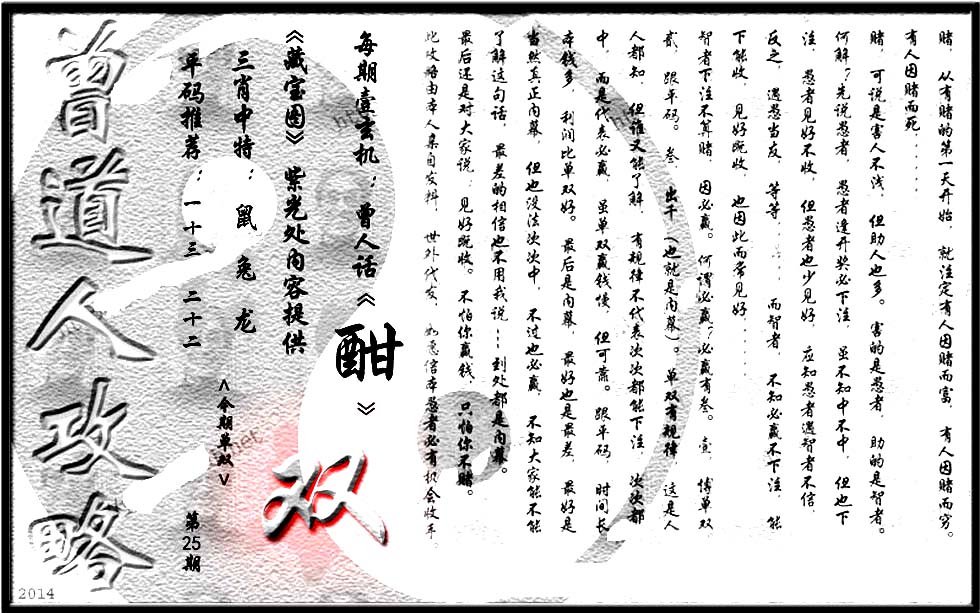 赌，从有赌的第一天开始，就注定有人因赌而富，有人因赌而穷。
有人因赌而死......
赌，可说是害人不浅，但助人也多。害的是愚者，助的是智者。
何解？先说愚者，愚者逢开奖必下注，虽不知中不中，但也下
注，愚者见好不收，但愚者也少见好，应知愚者遇智者不信，
反之，遇愚当友，等等......而智者，不知必赢不下注，能
下能收，见好既收，也因此而常见好......
智者下注不算赌，因必赢。何谓必赢？必赢有叁。壹，博单双，
贰，跟平码。叁，出千（也就是内幕）。单双有规律，这是人
人都知，但谁又能了解，有规律不代表次次都能下注，次次都
中，而是代表必赢，虽单双赢钱慢，但可靠。跟平码，时间长，
本钱多，利润比单双好。最后是内幕，最好也是最差，最好是
当然真正内幕，但也没法次次中，不过也必赢，不知大家能不能
了解这句话，最差的相信也不用我说---到处都是内幕。
最后还是对大家说：见好既收。不怕你赢钱，只怕你不赌。
此攻略由本人亲自发料，世外代友，如意信本愚者必有机会收丰。
每期壹玄机：曾人话《酣》
《藏宝图》紫光处内容提供
三肖中特：鼠 兔 龙
单码推荐：一十三 二十二
<今期单双>
双
第25期
曾道人攻略
2014